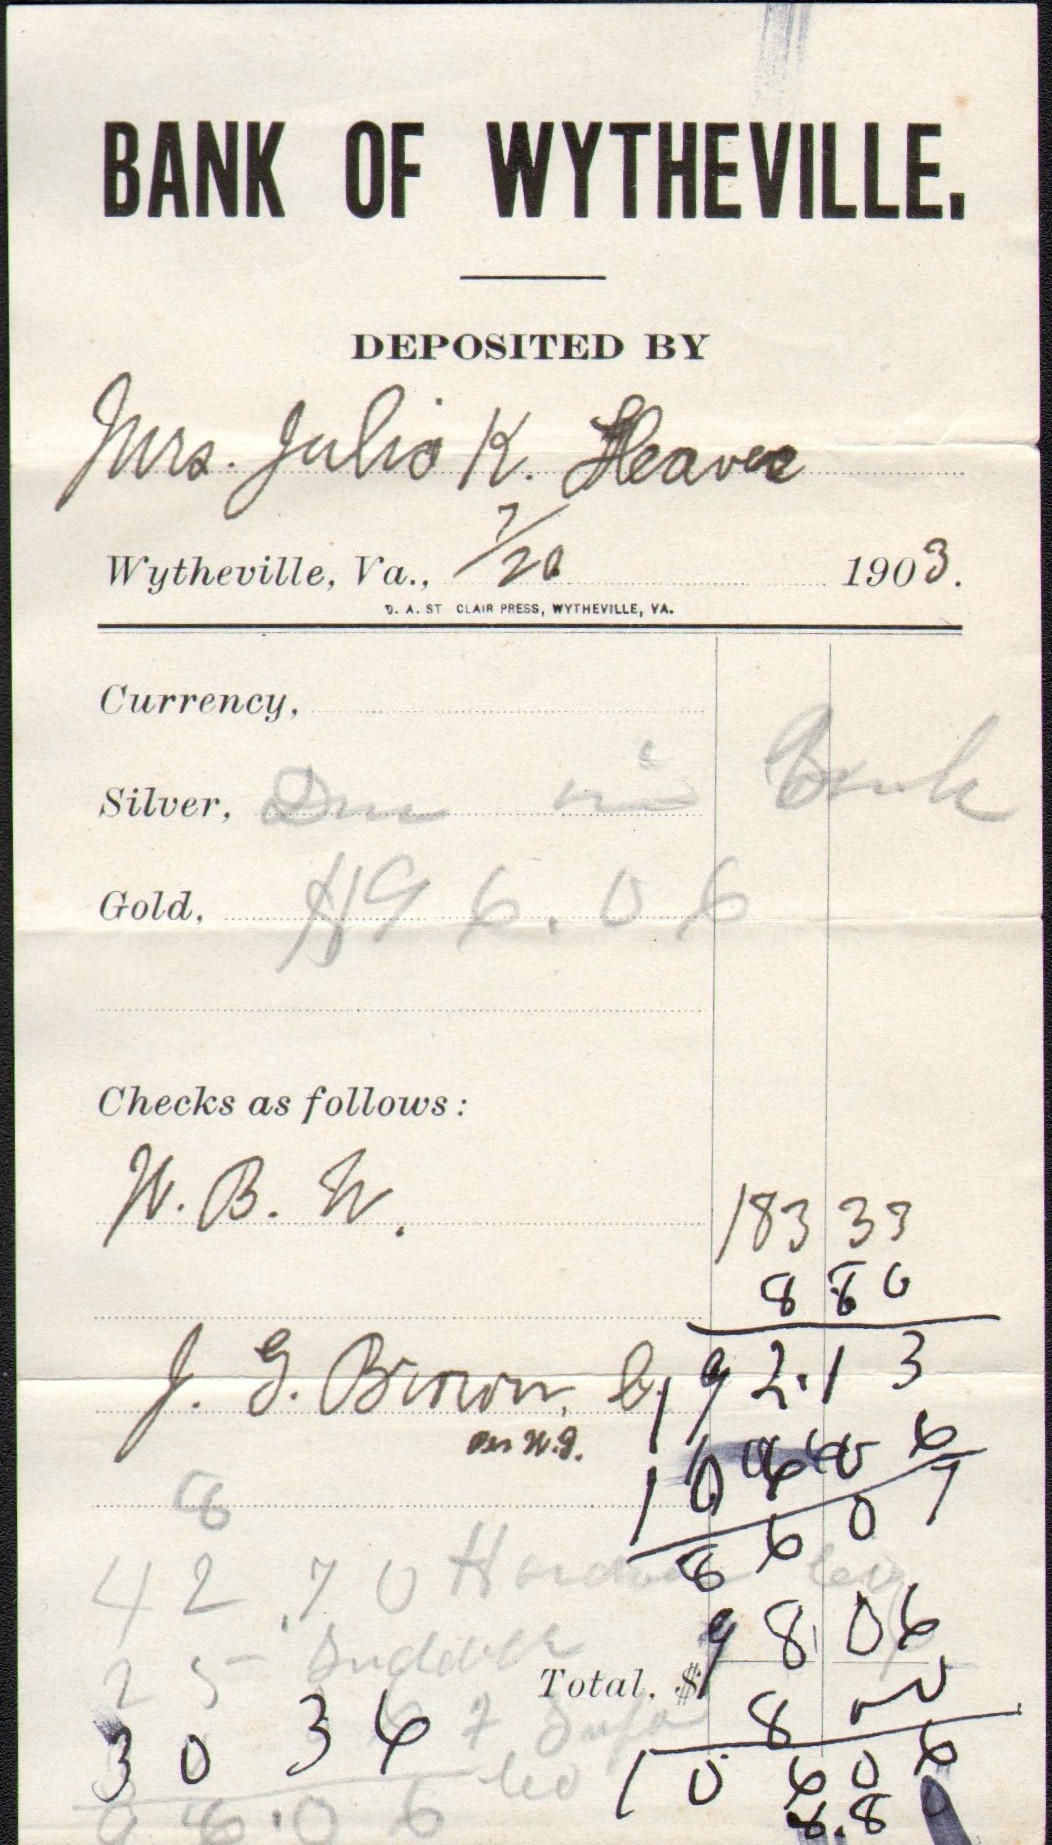 BANK OF WYTHEVILLE.
DEPOSITED BY
Mrs. Julia K. Heaver
Wytheville, Va., 7/20 1903.
D. A. ST CLAIR PRESS, WYTHEVILLE, VA.
Currency,
Silver, Due in Bank
Gold, $96.06
Checks as follows:
W. B. W. 183 33
8 80
J. G. Brown, 192.13
Per W.G.
106 06
8
86 07
42.70
98 06
25
Total, $
8 00
30 36
106 06
8.80